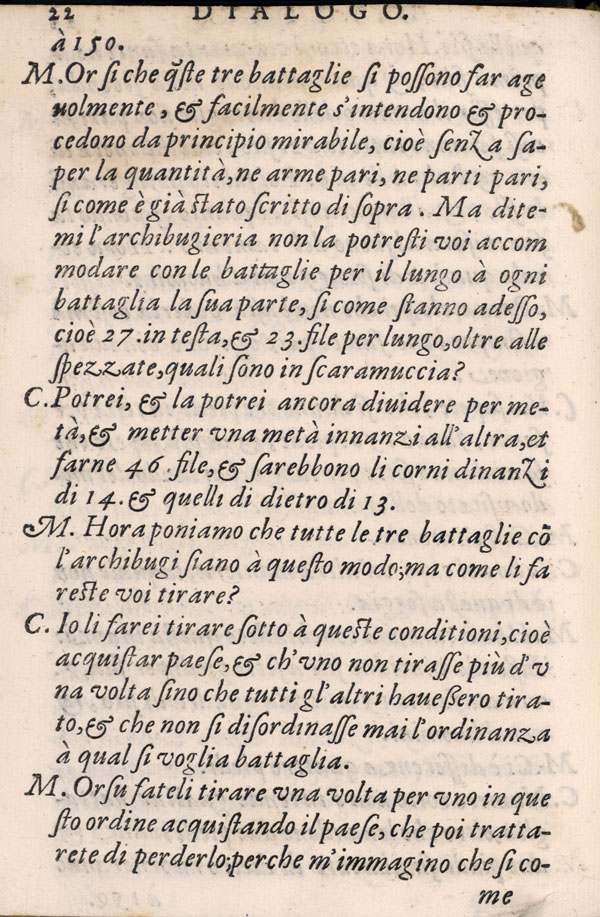 22 DIALOGO.
à 150.
M. Or si che q̃ste tre battaglie si possono far age
uolmente, & facilmente s'intendono & pro-
cedono da principio mirabile, cioè senza sa-
per la quantità, ne arme pari, ne parti pari,
si come è già stato scritto di sopra. Ma dite-
mi l'archibugieria non la potresti voi accom
modare con le battaglie per il lungo à ogni
battaglia la sua parte, si come stanno adesso,
cioè 27. in testa, & 23. file per lungo, oltre alle
spezzate, quali sono in scaramuccia?
C. Potrei, & la potrei ancora diuidere per me-
tà, & metter vna metà innanzi all'altra, et
farne 46. file, & sarebbono li corni dinanzi
di 14. & quelli di dietro di 13.
M. Hora poniamo che tutte le tre battaglie cõ
l'archibugi siano à questo modo; ma come li fa
reste voi tirare?
C. Io li farei tirare sotto à queste conditioni, cioè
acquistar paese, & ch'vno non tirasse più d'v
na volta sino che tutti gl'altri haueßero tira-
to, & che non si disordinasse mai l'ordinanza
à qual si voglia battaglia.
M. Orsu fateli tirare vna volta per vno in que
sto ordine acquistando il paese, che poi tratta-
rete di perderlo; perche m'immagino che si co-
me